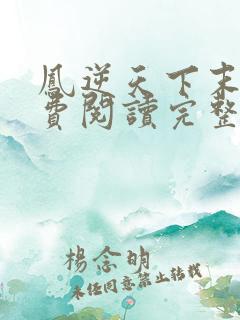 鳳逆天下末
費閱讀完整
楊念明
未經同意禁止轉載